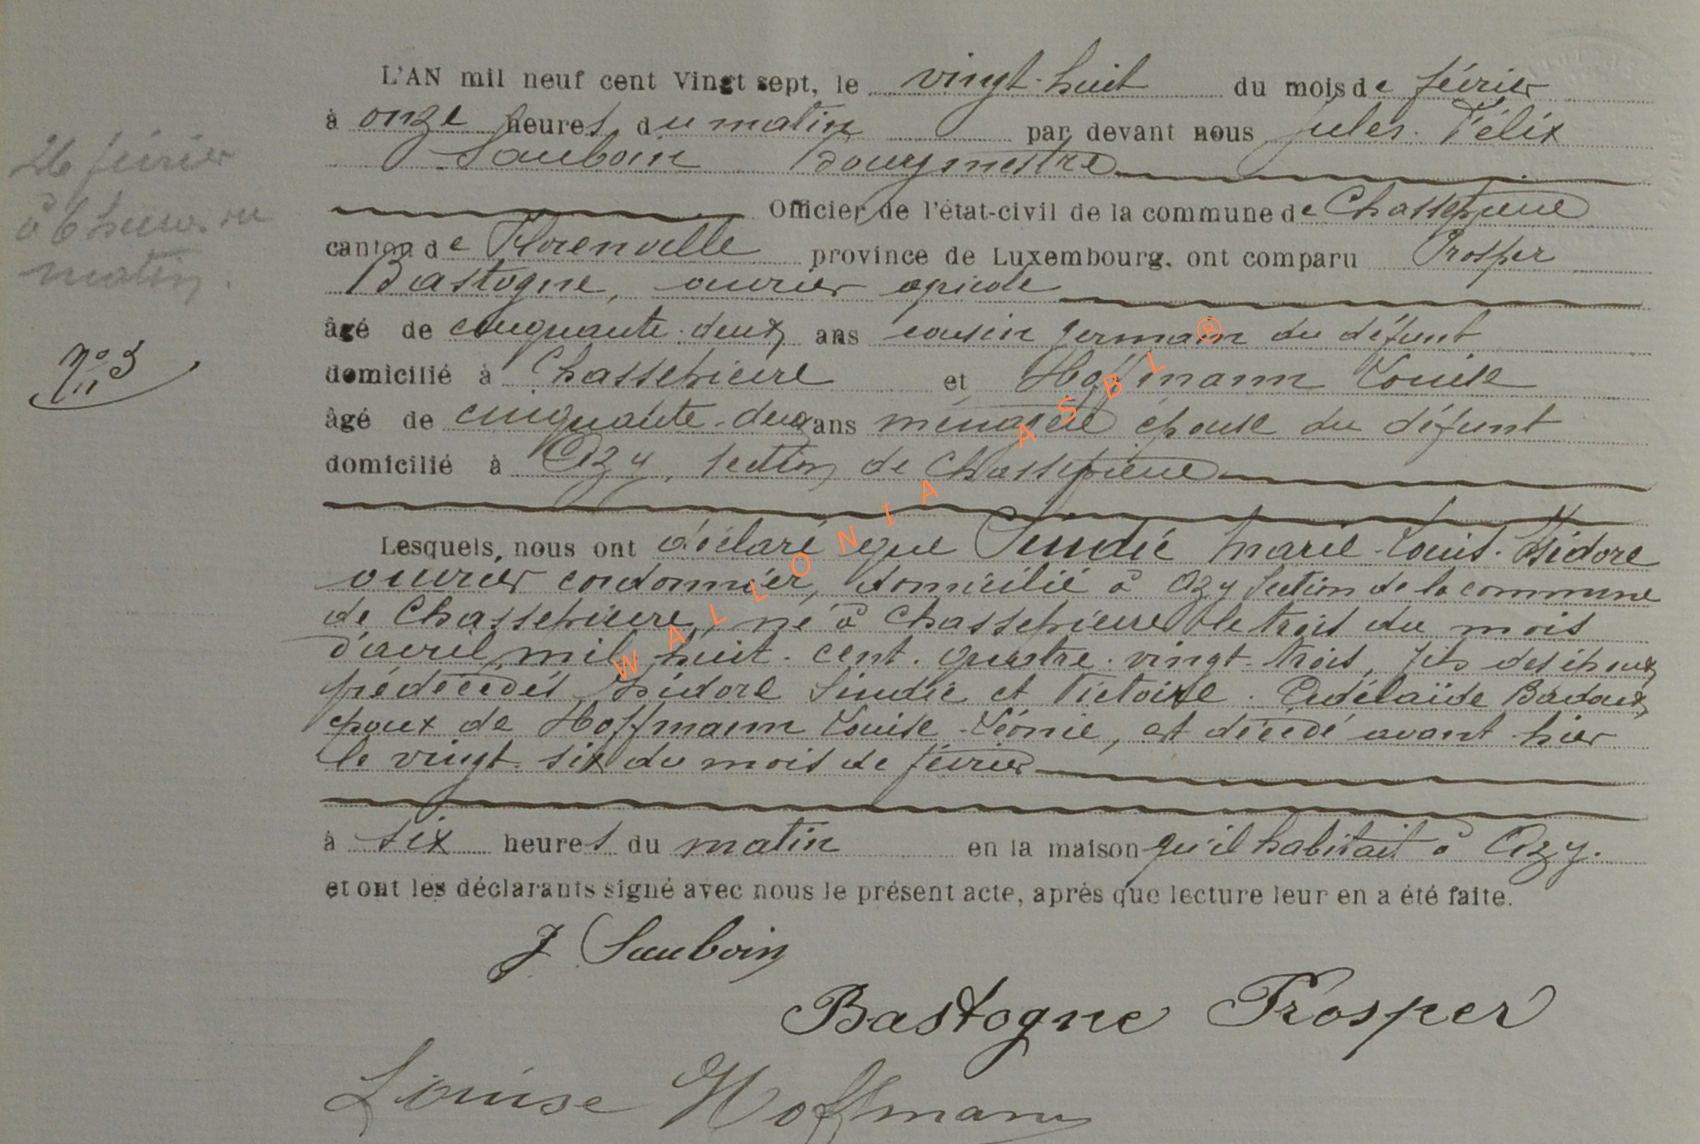 L'AN mil neuf cent Vingt sept, le vingt-huit du mois de février
à onze heures du matin par devant nous Jules. Félix
Sauboin Bourgmestre
Officier de l'état-civil de la commune de Chassepierre
canton de Florenville province de Luxembourg, ont comparu Prosper
Bastogne, ouvrier agricole
âgé de cinquante-deux ans cousin germain du défunt
domicilié à Chassepierre et Hoffmann Louise
âgé de cinquante-deux ans ménagère épouse du défunt
domicilié à Azy, section de Chassepierre
Lesquels, nous ont déclaré que Sindic Marie-Louis-Isidore
ouvrier cordonnier, domicilié à Azy section de la commune
de Chassepierre, né à Chassepierre le trois du mois
d'avril mil huit-cent-quatre-vingt-trois, fils des époux
prédécédés Isidore Sindic et Victoire-Adélaïde Badoux,
époux de Hoffmann Louise-Léonie, est décédé avant-hier
le vingt-six du mois de février
à six heures du matin en la maison qu'il habitait à Azy.
et ont les déclarants signé avec nous le présent acte, après que lecture leur en a été faite.
J Sauboin
Bastogne Prosper
Louise Hoffmann
26 février
à 6 heures du
matin.
n° 3
WALLONIA ASBL ®